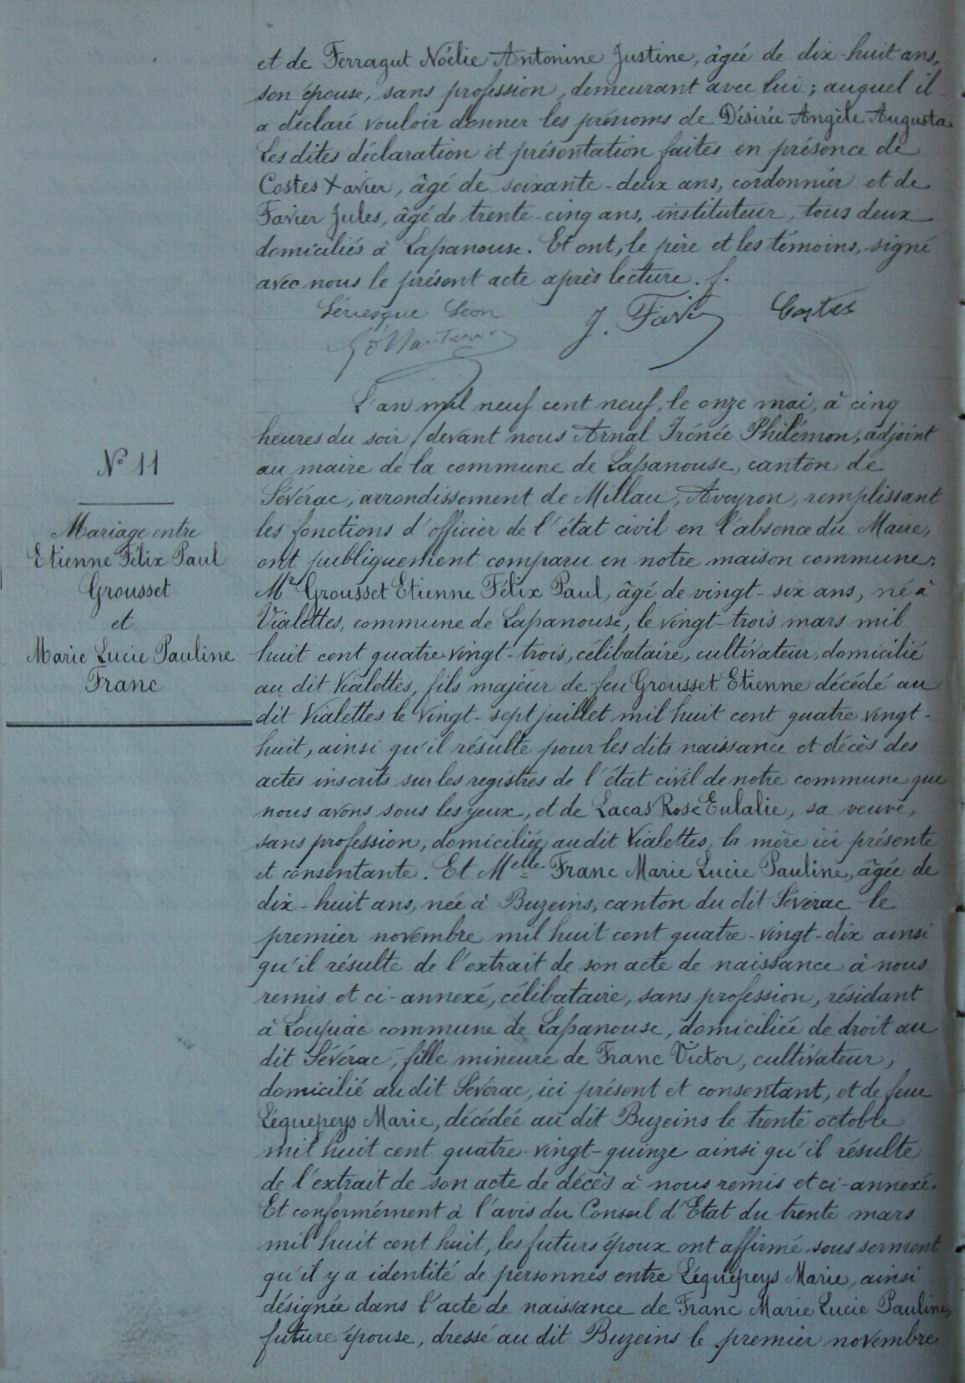 et de Ferragut Noélie Antonine Justine, âgée de dix-huit ans,
son épouse, sans profession, demeurant avec lui ; auquel il
a déclaré vouloir donner les prénoms de Désirée Angèle Augusta.
Les dites déclaration et présentation faites en présence de
Costes Xavier, âgé de soixante-deux ans, cordonnier et de
Favier Jules, âgé de trente-cinq ans, instituteur, tous deux
domiciliés à Lapanouse. Et ont, le père et les témoins, signé
avec nous le présent acte après lecture. f.
Lévesque Léon
J. Favier
Costes
L'an mil neuf cent neuf, le onze mai, à cinq
heures du soir, devant nous Arnal Irénée Philémon, adjoint
au maire de la commune de Lapanouse, canton de
Sévérac, arrondissement de Millau, Aveyron, remplissant
les fonctions d'officier de l'état civil en l'absence du Maire,
ont publiquement comparu en notre maison commune :
Mr Grousset Etienne Félix Paul, âgé de vingt-six ans, né à
Vialettes, commune de Lapanouse, le vingt-trois mars mil
huit cent quatre-vingt-trois, célibataire, cultivateur, domicilié
au dit Vialettes, fils majeur de feu Grousset Etienne décédé au
dit Vialettes le vingt-sept juillet mil huit cent quatre vingt-
huit, ainsi qu'il résulte pour les dits naissance et décès des
actes inscrits sur les registres de l'état civil de notre commune que
nous avons sous les yeux, et de Lacas Rose Eulalie, sa veuve,
sans profession, domiciliée audit Vialettes, la mère ici présente
et consentante. Et Melle Franc Marie Lucie Pauline, âgée de
dix-huit ans, née à Buzeins, canton du dit Sévérac le
premier novembre mil huit cent quatre-vingt-dix ainsi
qu'il résulte de l'extrait de son acte de naissance à nous
remis et ci-annexé, célibataire, sans profession, résidant
à Loujuac commune de Lapanouse, domiciliée de droit au
dit Sévérac, fille mineure de Franc Victor, cultivateur,
domicilié au dit Sévérac, ici présent et consentant, et de feue
Léquepeys Marie, décédée au dit Buzeins le trente octobre
mil huit cent quatre-vingt-quinze ainsi qu'il résulte
de l'extrait de son acte de décès à nous remis et ci-annexé.
Et conformément à l'avis du Conseil d'Etat du trente mars
mil huit cent huit, les futurs époux ont affirmé sous serment
qu'il y a identité de personnes entre Léquepeys Marie, ainsi
désignée dans l'acte de naissance de Franc Marie Lucie Pauline,
future épouse, dressé au dit Buzeins le premier novembre
No 11
Mariage entre
Etienne Félix Paul
Grousset
et
Marie Lucie Pauline
Franc